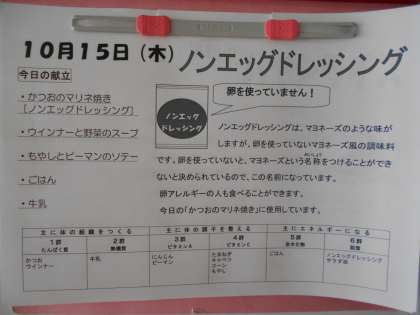 10月15日(木)
ノンエッグドレッシング
今日の献立
・かつおのマリネ焼き
[ノンエッグドレッシング]
・ウインナーと野菜のスープ
・もやしとピーマンのソテー
・ごはん
・牛乳
ノンエッグ
ドレッシング
卵を使っていません!
ノンエッグドレッシングは、マヨネーズのような味が
しますが、卵を使っていないマヨネーズ風の調味料
です。卵を使っていないと、マヨネーズという名称をつけることができ
ないと決められているので、この名前になっています。
卵アレルギーの人も食べることができます。
今日の「かつおのマリネ焼き」に使用しています。
主に体の組織をつくる 主に体の調子を整える 主にエネルギーになる
1群 2群 3群 4群 5群 6群
たんぱく質 無機質 ビタミンA ビタミンC 炭水化物 脂質
かつお 牛乳 にんじん たまねぎ ごはん ノンエッグドレッシング
ウインナー ピーマン キャベツ サラダ油
コーン
もやし